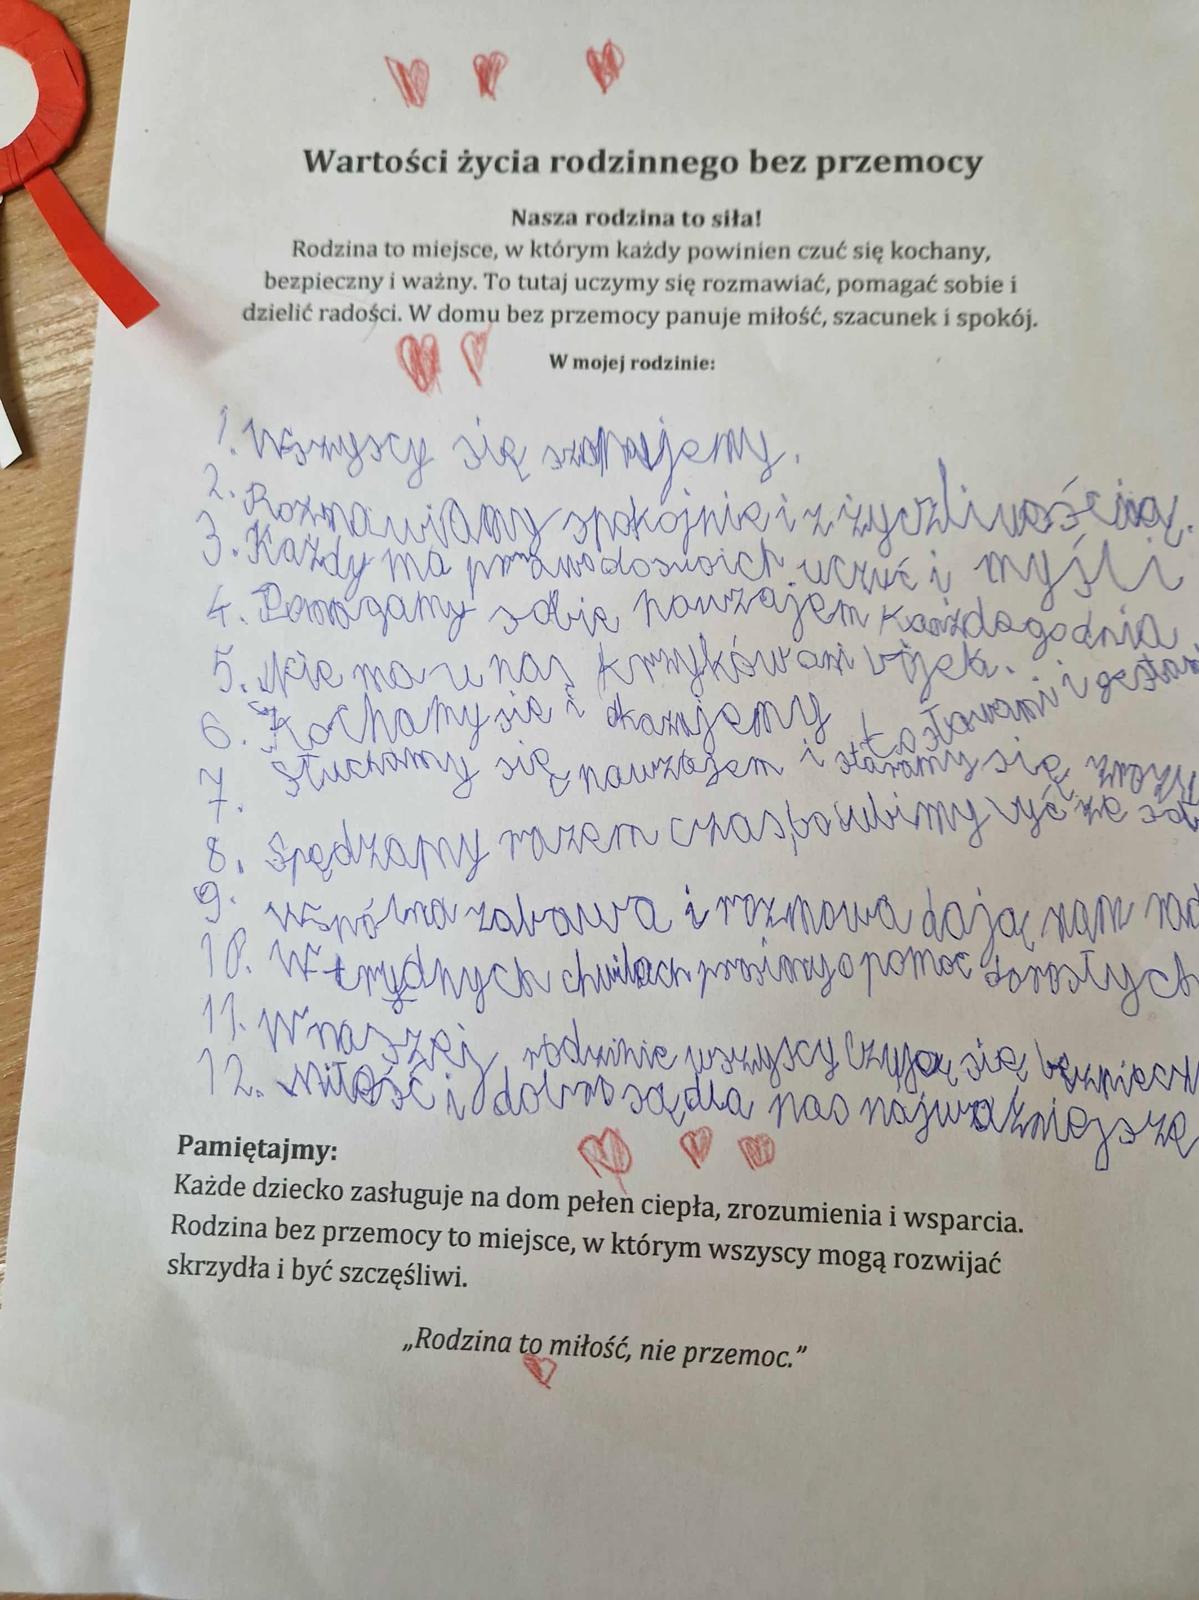 Wartości życia rodzinnego bez przemocy
Nasza rodzina to siła!
Rodzina to miejsce, w którym każdy powinien czuć się kochany,
bezpieczny i ważny. To tutaj uczymy się rozmawiać, pomagać sobie i
dzielić radości. W domu bez przemocy panuje miłość, szacunek i spokój.
W mojej rodzinie:
1. Wszyscy się szanujemy.
2. Rozmawiamy spokojnie i z życzliwością.
3. Każdy ma prawo do swoich uczuć i myśli
4. Pomagamy sobie nawzajem każdego dnia
5. Nie ma u nas krzyków ani bijek.
6. Kochamy się i okazujemy to słowami i gestami
7. Słuchamy się nawzajem i staramy się zrozu
8. Spędzamy razem czas, bo lubimy być ze sob
9. Wspólna zabawa i rozmowa dają nam rad
10. W trudnych chwilach prosimy o pomoc dorosłych
11. W naszej rodzinie wszyscy czują się bezpieczn
12. Miłość i dobro są dla nas najważniejsze
Pamiętajmy:
Każde dziecko zasługuje na dom pełen ciepła, zrozumienia i wsparcia.
Rodzina bez przemocy to miejsce, w którym wszyscy mogą rozwijać
skrzydła i być szczęśliwi.
„Rodzina to miłość, nie przemoc.”